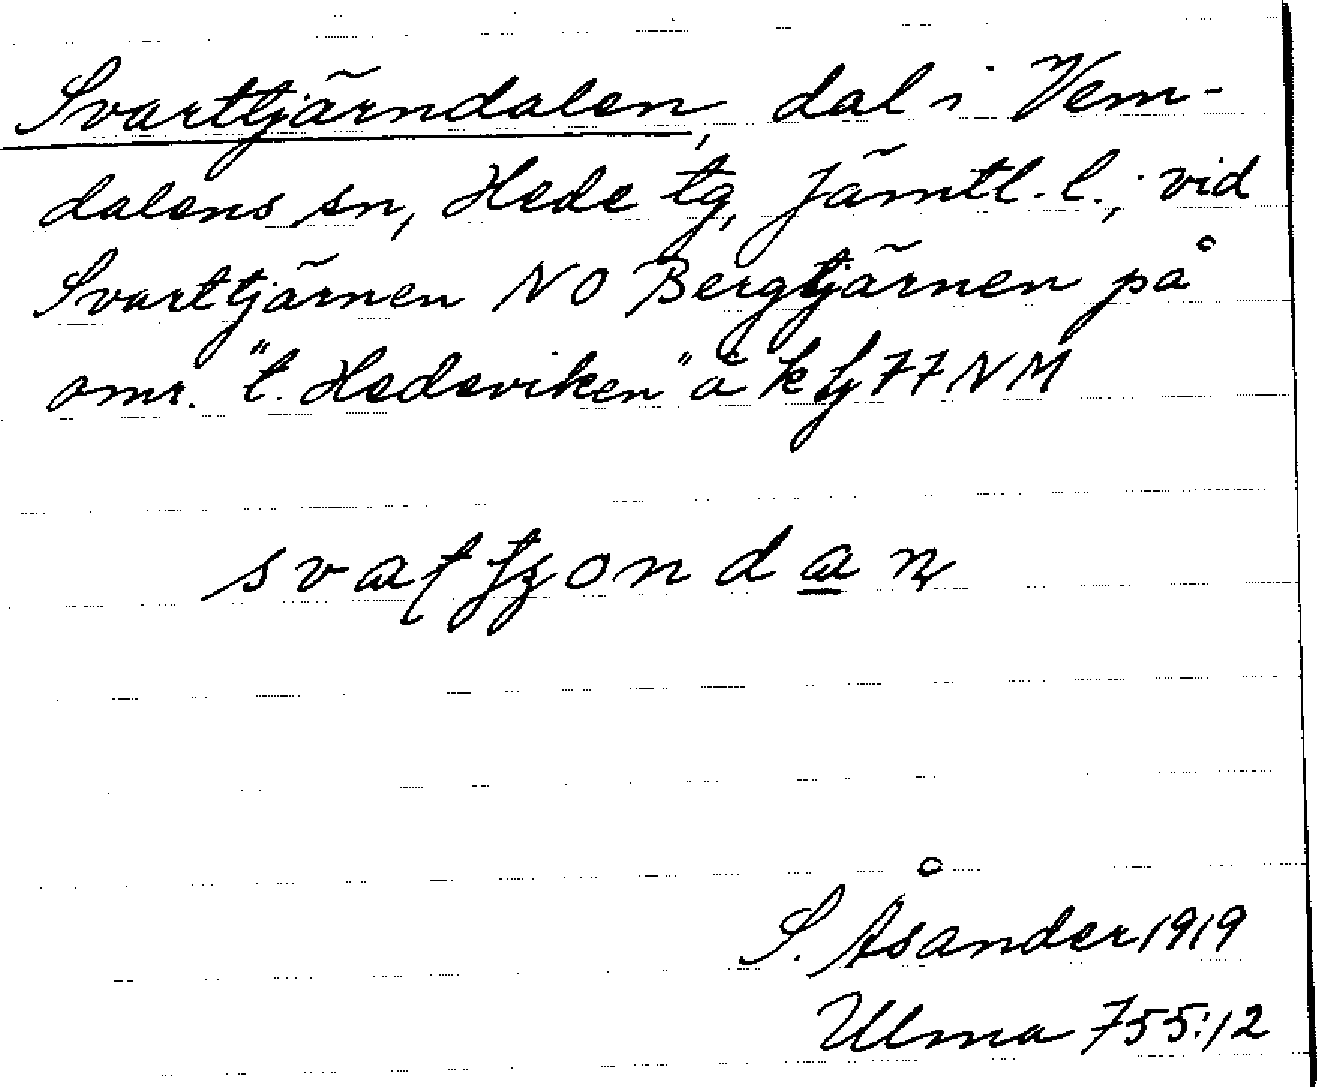 Svarttjärndalen, dal i Vem-
dalens sn, Hede tg, Jämtl. l.; vid
Svarttjärnen NO Bergtjärnen på
omr. "t. Hedeviken" å k bl 77 NM
S. Åsander 1919
Ulma 755:12